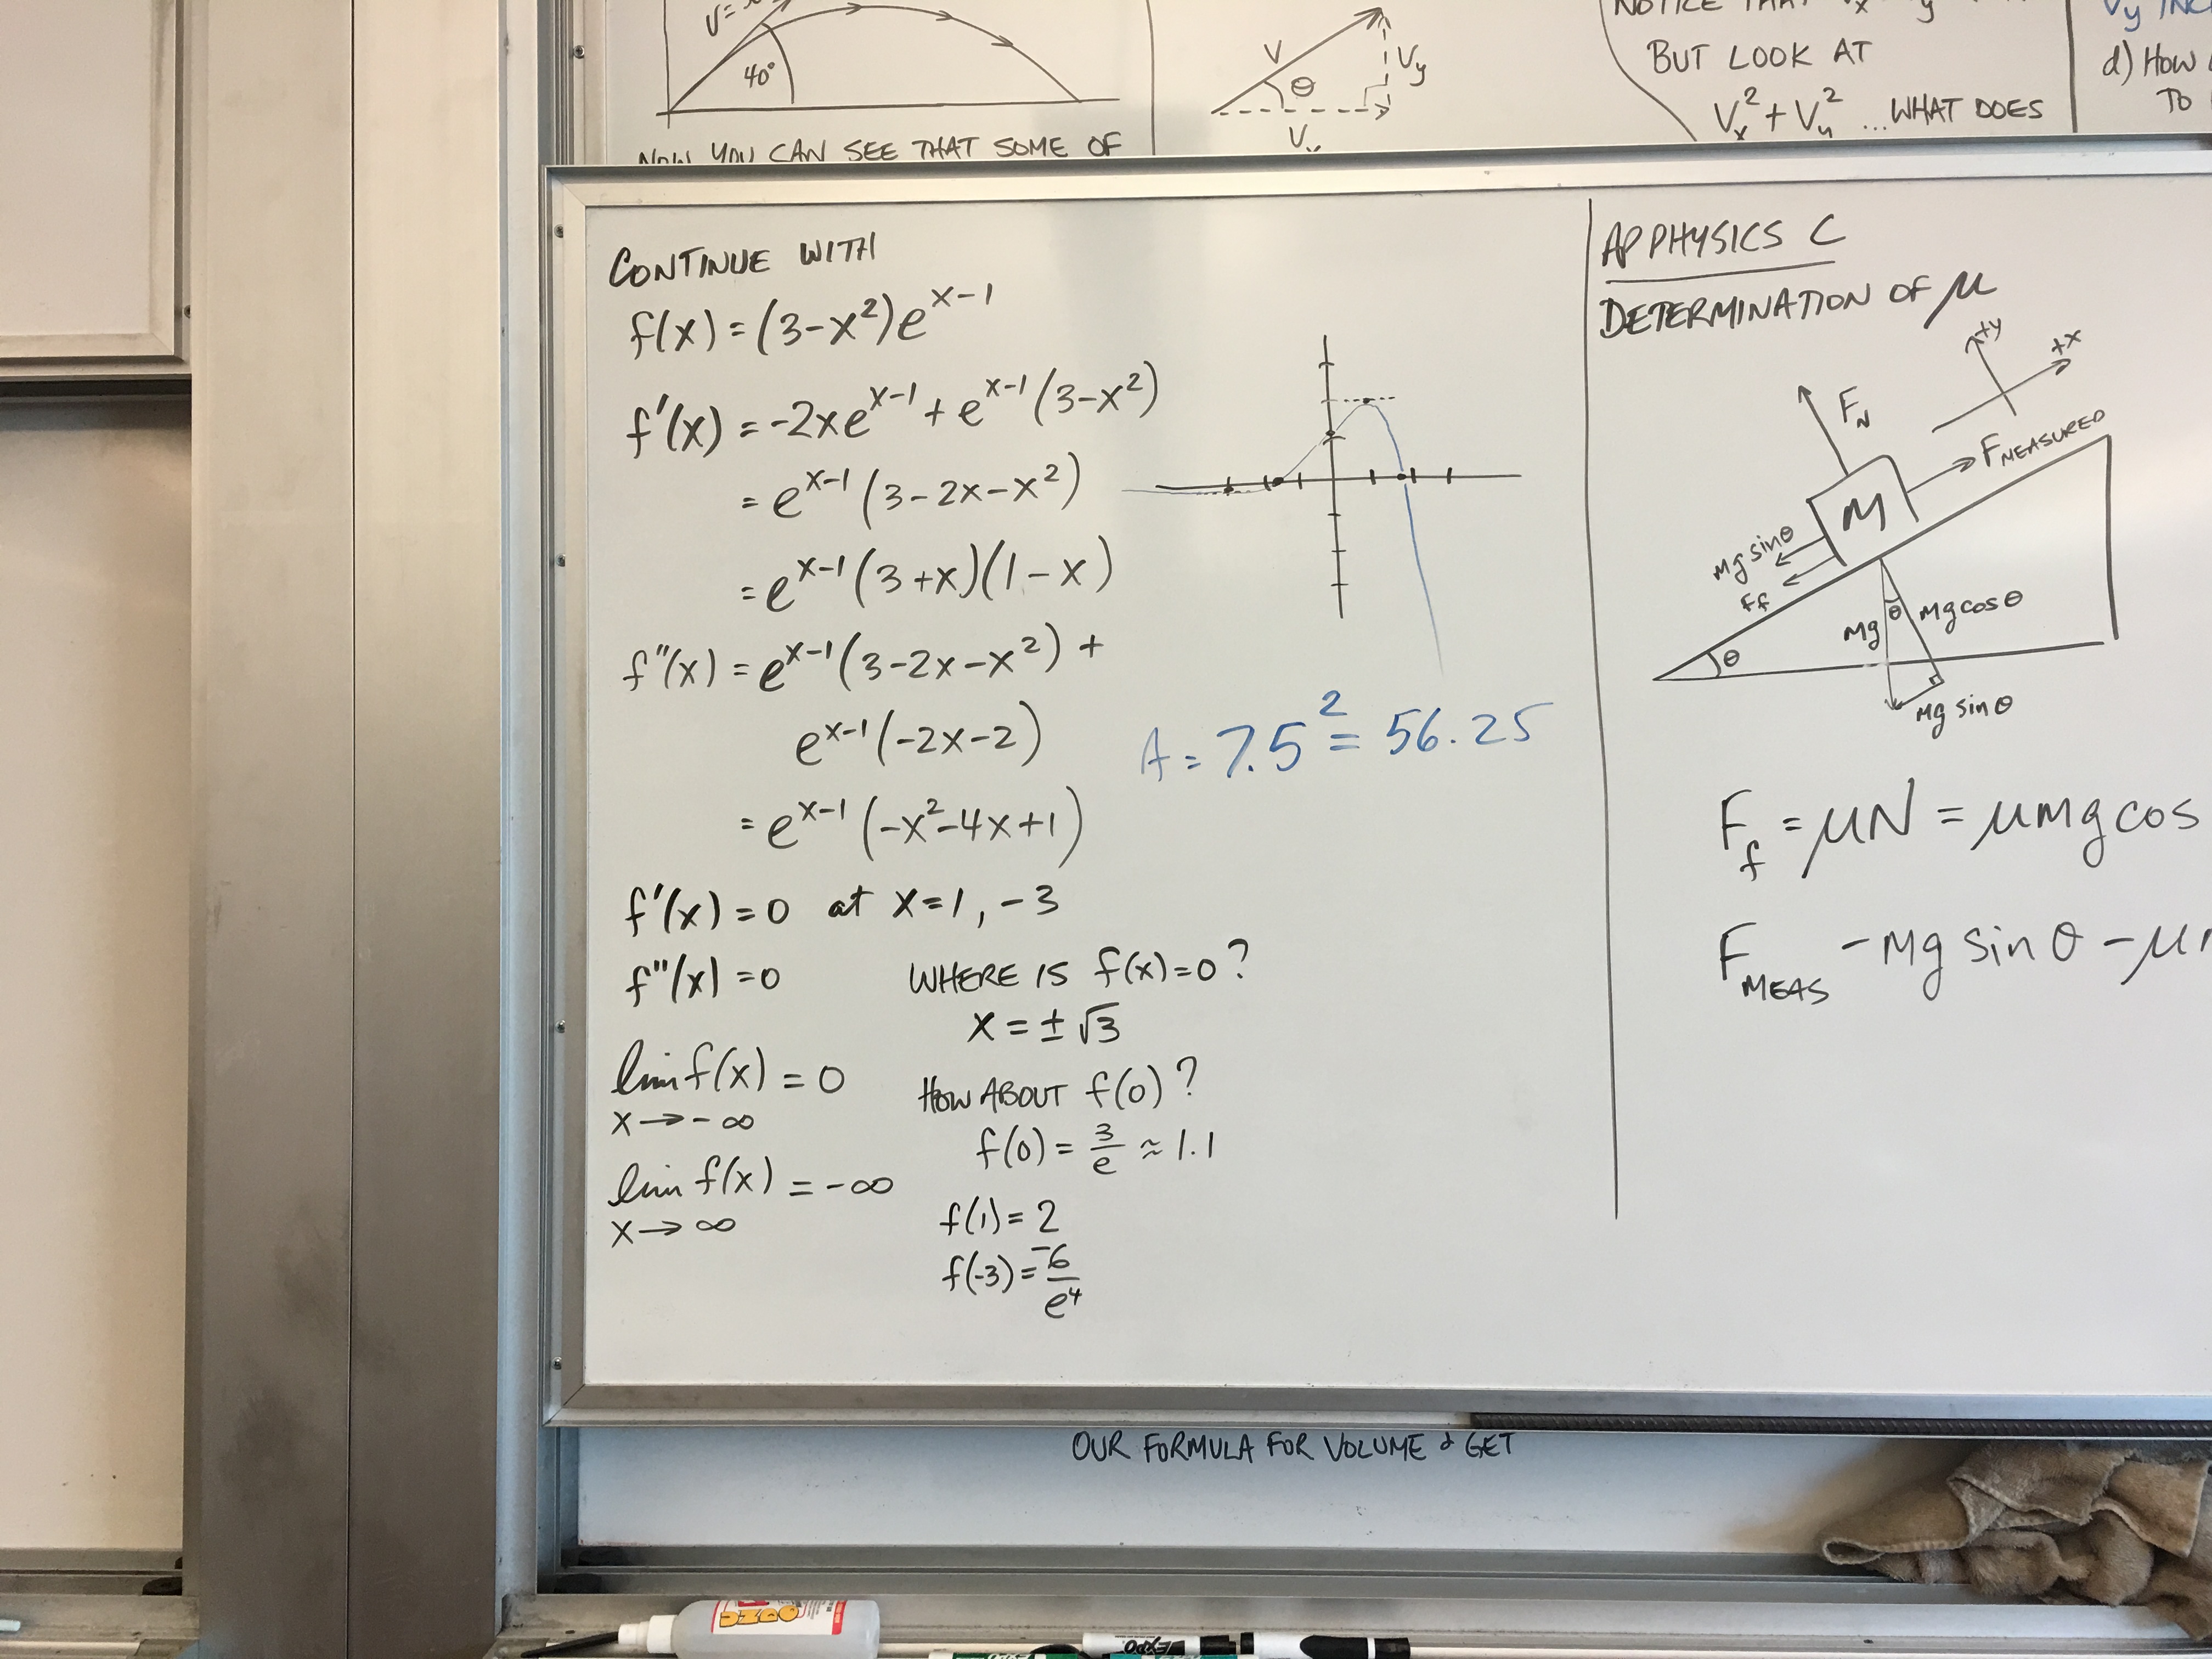 40°
NOW YOU CAN SEE THAT SOME OF
V
θ
Vy
NOTICE THAT
BUT LOOK AT
Vx² + Vy² ...WHAT DOES
Vy
d) HOW
TO
CONTINUE WITH
f(x) = (3-x²)e^(x-1)
f'(x) = -2xe^(x-1) + e^(x-1)(3-x²)
= e^(x-1)(3-2x-x²)
= e^(x-1)(3+x)(1-x)
f"(x) = e^(x-1)(3-2x-x²) +
e^(x-1)(-2x-2)
= e^(x-1)(-x²-4x+1)
f'(x) = 0 at x=1, -3
f"(x) = 0
lim f(x) = 0
x→-∞
lim f(x) = -∞
x→∞
WHERE IS f(x)=0?
x = ±√3
HOW ABOUT f(0)?
f(0) = 3/e ≈ 1.1
f(1) = 2
f(-3) = -6/e⁴
A = 7.5² = 56.25
AP PHYSICS C
DETERMINATION OF μ
+y
+x
F_N
F_MEASURED
M
Mg sinθ
Ff
θ
Mg
θ
Mg cosθ
Mg sinθ
F_f = μN = μMg cos
F_MEAS - Mg sinθ - μ
OUR FORMULA FOR VOLUME & GET
EXPO